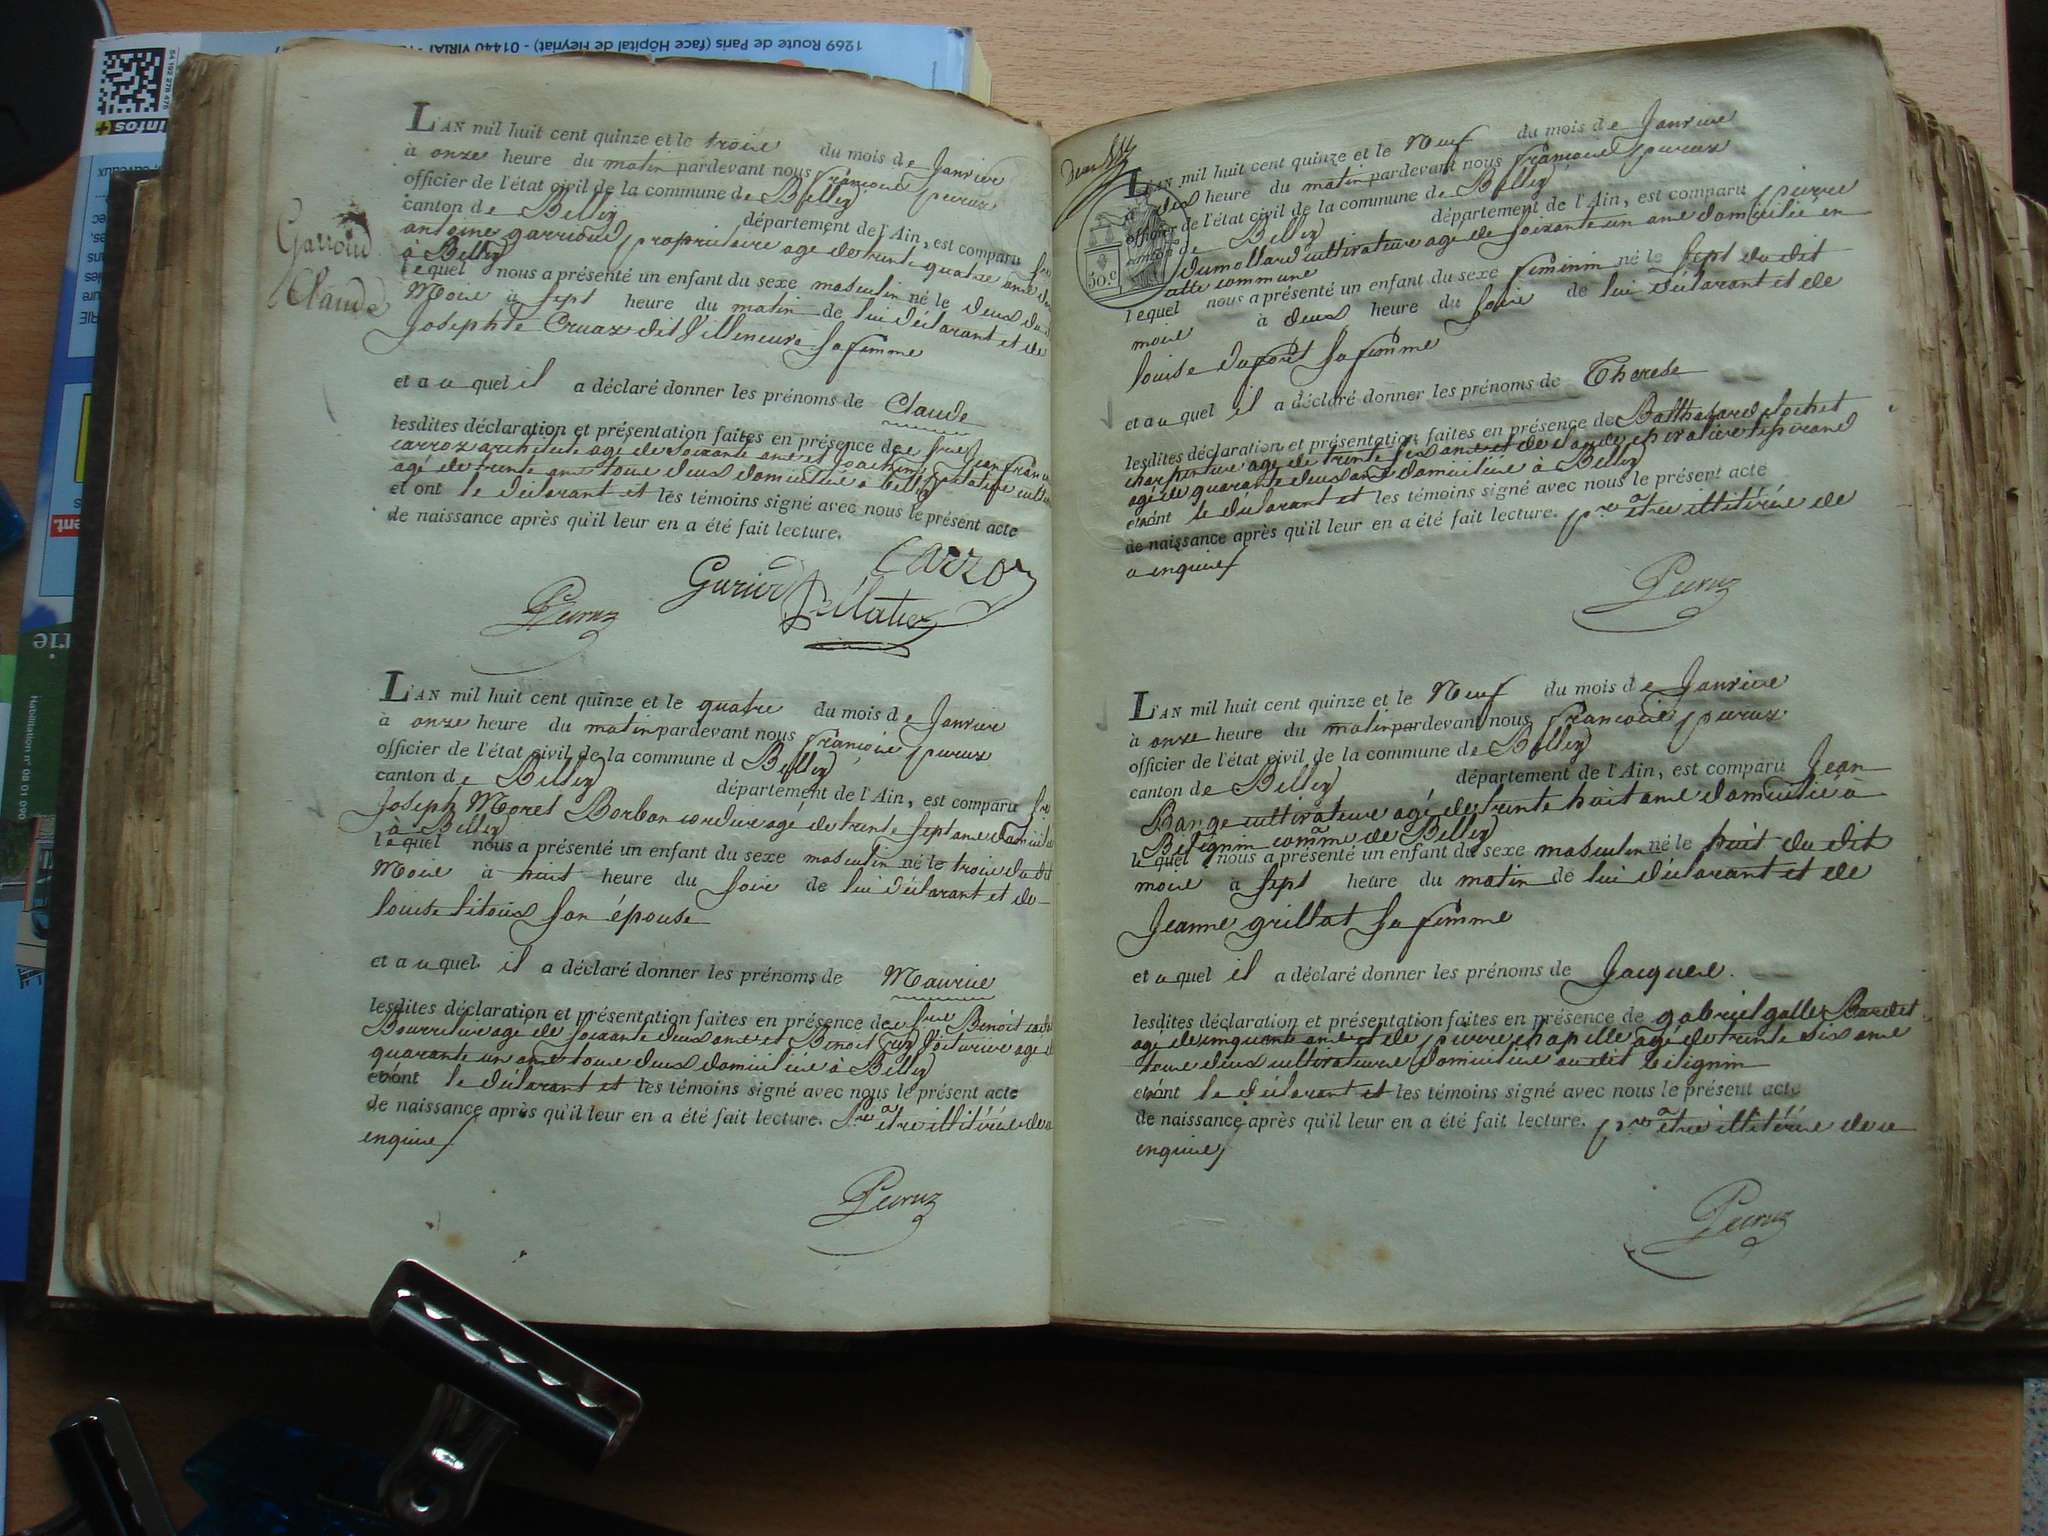 1269 Route de Paris (face Hôpital de Fleyriat) - 01440 VIRIAT
infos+
Garroud
Claude
L'AN mil huit cent quinze et le trois du mois de Janvier
à onze heure du matin pardevant nous françois peruz
officier de l'état civil de la commune de Belley
canton de Belley département de l'Ain, est comparu
antoine garrioud propriétaire agé de trente quatre ans
à Belley
lequel nous a présenté un enfant du sexe masculin né le deux du
Mois à sept heure du matin de lui déclarant et de
Josephte Cruaz dit Villeneuve sa femme
et a u quel il a déclaré donner les prénoms de Claude
lesdites déclaration et présentation faites en présence de
carroz architecte agé de soixante ans et
agé de trente ans tous deux domiciliés à belley
et ont le déclarant et les témoins signé avec nous le présent acte
de naissance après qu'il leur en a été fait lecture.
Carroz
Peruz
L'AN mil huit cent quinze et le quatre du mois de Janvier
à onze heure du matin pardevant nous françois peruz
officier de l'état civil de la commune d Belley
canton de Belley département de l'Ain, est comparu
Joseph Moret Borbon cordier agé de trente sept ans
à Belley
lequel nous a présenté un enfant du sexe masculin né le trois du dit
Mois à huit heure du soir de lui déclarant et de
louise son épouse
et a u quel il a déclaré donner les prénoms de Maurice
lesdites déclaration et présentation faites en présence de Benoit
agé de soixante deux ans et Benoit voiturier agé
quarante un ans tous deux domiciliés à Belley
et ont le déclarant et les témoins signé avec nous le présent acte
de naissance après qu'il leur en a été fait lecture. être illitérés de
enquis
Peruz
50.c
L'AN mil huit cent quinze et le Neuf du mois de Janvier
à dix heure du matin pardevant nous françois peruz
officier de l'état civil de la commune de Belley
canton de Belley département de l'Ain, est comparu pierre
Dumollard cultivateur agé de soixante un ans domicilié en
cette commune
lequel nous a présenté un enfant du sexe feminin né le sept du dit
mois à deux heure du soir de lui déclarant et de
louise duport sa femme
et a u quel il a déclaré donner les prénoms de Therese
lesdites déclaration et présentation faites en présence de Balthazard
charpentier agé de trente six ans et de claude
agé de quarante deux ans domiciliés à Belley
et ont le déclarant et les témoins signé avec nous le présent acte
de naissance après qu'il leur en a été fait lecture. être illitérés de
a enquis
Peruz
L'AN mil huit cent quinze et le Neuf du mois de Janvier
à onze heure du matin pardevant nous françois peruz
officier de l'état civil de la commune de Belley
canton de Belley département de l'Ain, est comparu Jean
Barge cultivateur agé de trente huit ans domicilié à
Bétignin comne de Belley
lequel nous a présenté un enfant du sexe masculin né le huit du dit
mois à sept heure du matin de lui déclarant et de
Jeanne grillat sa femme
et a u quel il a déclaré donner les prénoms de Jacques.
lesdites déclaration et présentation faites en présence de gabriel
agé de cinquante ans et de pierre chapelle agé de trente six ans
tous deux cultivateurs domiciliés au dit
et ont le déclarant et les témoins signé avec nous le présent acte
de naissance après qu'il leur en a été fait lecture. être illitérés de ce
enquis
Peruz